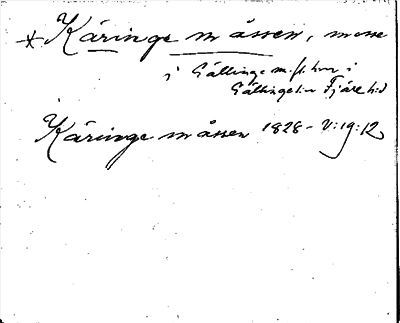 * Käringe måssen, mosse
i Gällinge m. fl. hmn i
Gällinge sn Fjäre hd
Käringe måssen 1828 - V:19:12